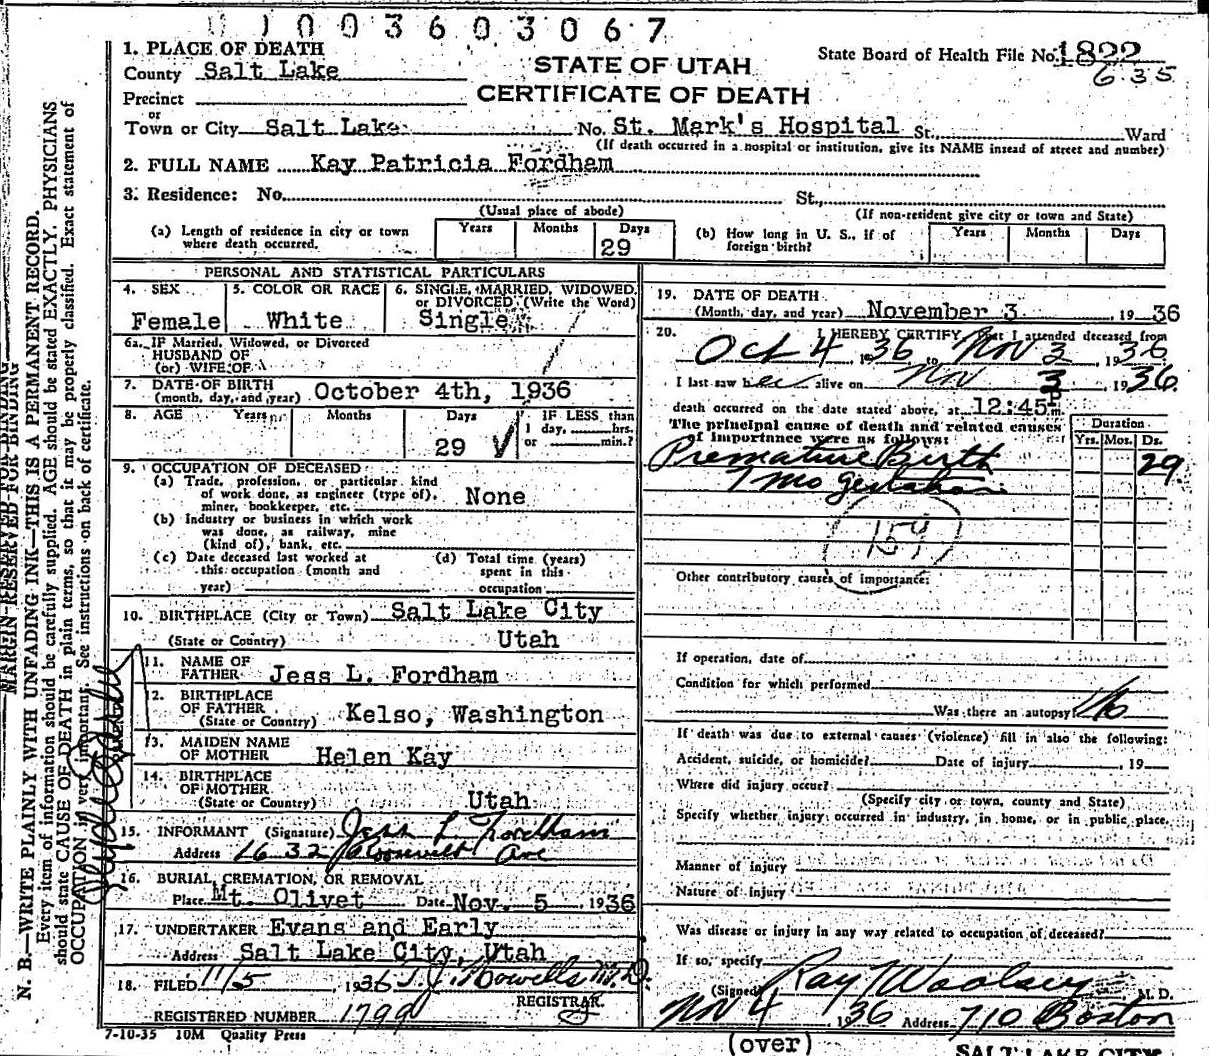 1003603067
1. PLACE OF DEATH
STATE OF UTAH
State Board of Health File No. 1822
County Salt Lake
635
CERTIFICATE OF DEATH
Precinct
or
Town or City Salt Lake No. St. Mark's Hospital St., Ward
(If death occurred in a hospital or institution, give its NAME instead of street and number)
2. FULL NAME Kay Patricia Fordham
3. Residence: No. St.,
(Usual place of abode) (If non-resident give city or town and State)
(a) Length of residence in city or town where death occurred. Years Months Days 29
(b) How long in U. S., if of foreign birth? Years Months Days
PERSONAL AND STATISTICAL PARTICULARS
4. SEX 5. COLOR OR RACE 6. SINGLE, MARRIED, WIDOWED, or DIVORCED, (Write the Word)
Female White Single
6a. IF Married, Widowed, or Divorced
HUSBAND OF
(or) WIFE OF
7. DATE OF BIRTH
(month, day, and year) October 4th, 1936
8. AGE Years Months Days IF LESS than
1 day, hrs.
29 or min.?
9. OCCUPATION OF DECEASED
(a) Trade, profession, or particular kind
of work done, as engineer (type of),
miner, bookkeeper, etc. None
(b) Industry or business in which work
was done, as railway, mine
(kind of), bank, etc.
(c) Date deceased last worked at
this occupation (month and
year)
(d) Total time (years)
spent in this
occupation
10. BIRTHPLACE (City or Town) Salt Lake City
(State or Country) Utah
11. NAME OF
FATHER Jess L. Fordham
12. BIRTHPLACE
OF FATHER
(State or Country) Kelso, Washington
13. MAIDEN NAME
OF MOTHER Helen Kay
14. BIRTHPLACE
OF MOTHER
(State or Country) Utah
15. INFORMANT (Signature) Jess L. Fordham
Address 1632 Roosevelt Ave
16. BURIAL, CREMATION, OR REMOVAL
Place Mt. Olivet Date Nov. 5, 1936
17. UNDERTAKER Evans and Early
Address Salt Lake City, Utah
18. FILED 11/5 1936 Howells M.D.
REGISTRAR
REGISTERED NUMBER 1799
7-10-35 10M Quality Press
19. DATE OF DEATH
(Month, day, and year) November 3, 1936
20. I HEREBY CERTIFY that I attended deceased from
Oct 4 1936 to Nov 3, 1936
I last saw her alive on Nov 3, 1936
death occurred on the date stated above, at 12:45 P m.
The principal cause of death and related causes
of importance were as follows:
Duration
Yrs. Mos. Ds.
Premature Birth 29
7 mo gestation
159
Other contributory causes of importance:
If operation, date of
Condition for which performed
Was there an autopsy? No
If death was due to external causes (violence) fill in also the following:
Accident, suicide, or homicide? Date of injury , 19
Where did injury occur?
(Specify city or town, county and State)
Specify whether injury occurred in industry, in home, or in public place.
Manner of injury
Nature of injury
Was disease or injury in any way related to occupation of deceased?
If so, specify
(Signed) Ray Woolsey M. D.
Nov 4, 1936 Address 710 Boston
(over)
SALT LAKE CITY
MARGIN RESERVED FOR BINDING
N. B.—WRITE PLAINLY WITH UNFADING INK—THIS IS A PERMANENT RECORD.
Every item of information should be carefully supplied. AGE should be stated EXACTLY. PHYSICIANS
should state CAUSE OF DEATH in plain terms, so that it may be properly classified. Exact statement of
OCCUPATION is very important. See instructions on back of certificate.